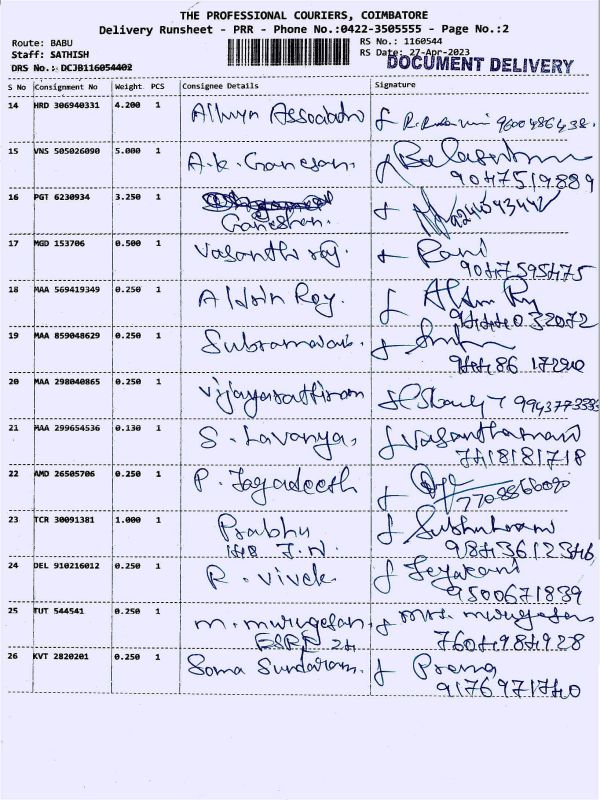 THE PROFESSIONAL COURIERS, COIMBATORE
Delivery Runsheet - PRR - Phone No.:0422-3505555 - Page No.:2
Route: BABU
Staff: SATHISH
DRS No.: DCJB116054402
RS No.: 1160544
RS Date: 27-Apr-2023
DOCUMENT DELIVERY
S No Consignment No Weight PCS Consignee Details Signature
14 HRD 306940331 4.200 1 Allwyn 9600486438
15 VNS 505026090 5.000 1 A.K. Ganesan.
9047519889
16 PGT 6230934 3.250 1
Ganeshan.
17 MGD 153706 0.500 1 Vasanthi raj. Rani
9047595475
18 MAA 569419349 0.250 1 Aldrin Roy.
9444032072
19 MAA 859048629 0.250 1
20 MAA 298040865 0.250 1 9943773333
21 MAA 299654536 0.130 1 S. Lavanya, Vasanthamani
7418181718
22 AMD 26505706 0.250 1 P. Jagadeesh
7708866090
23 TCR 30091381 1.000 1 Prabhu
9843612346
24 DEL 910216012 0.250 1 R. Vivek Jeyarani
9500671839
25 TUT 544541 0.250 1 M. Murugesan, Mrs. Murugesan
7604984928
26 KVT 2820201 0.250 1 Soma Sundaram. Prema
9176971740